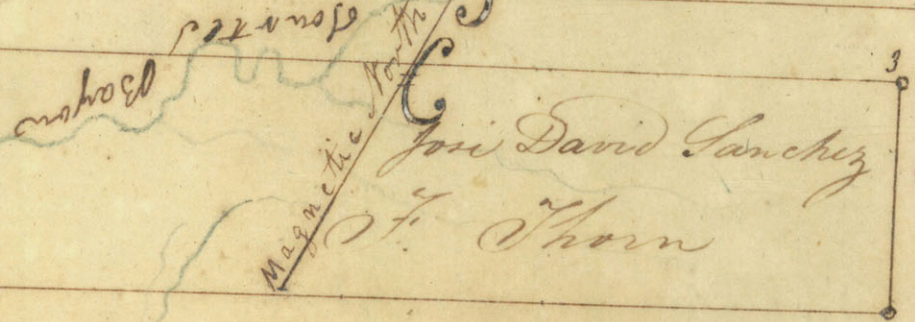 Bayou
Magnetic North
3
Josi David Sanchez
F. Thorn